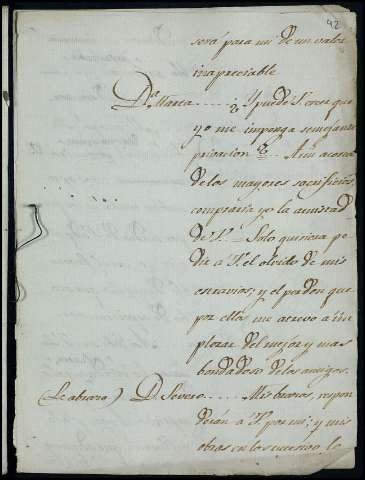 42
será para mi de un valor
inapreciable.
Dª. Marta..... ¿Y puede V. creer que
yo me imponga semejante
privacion? Aun a costa
de los mayores sacrificios,
compraria yo la amistad
de V. = Solo quisiera pe
dir a V. el olvido de mis
estravios; y el perdon que
por ellos me atrevo a im
plorar del mejor y mas
bondadoso de los amigos.
(Le abraza) D. Severo..... Mis brazos respon
derán a V. por mi; y mis
obras en lo sucesivo, le